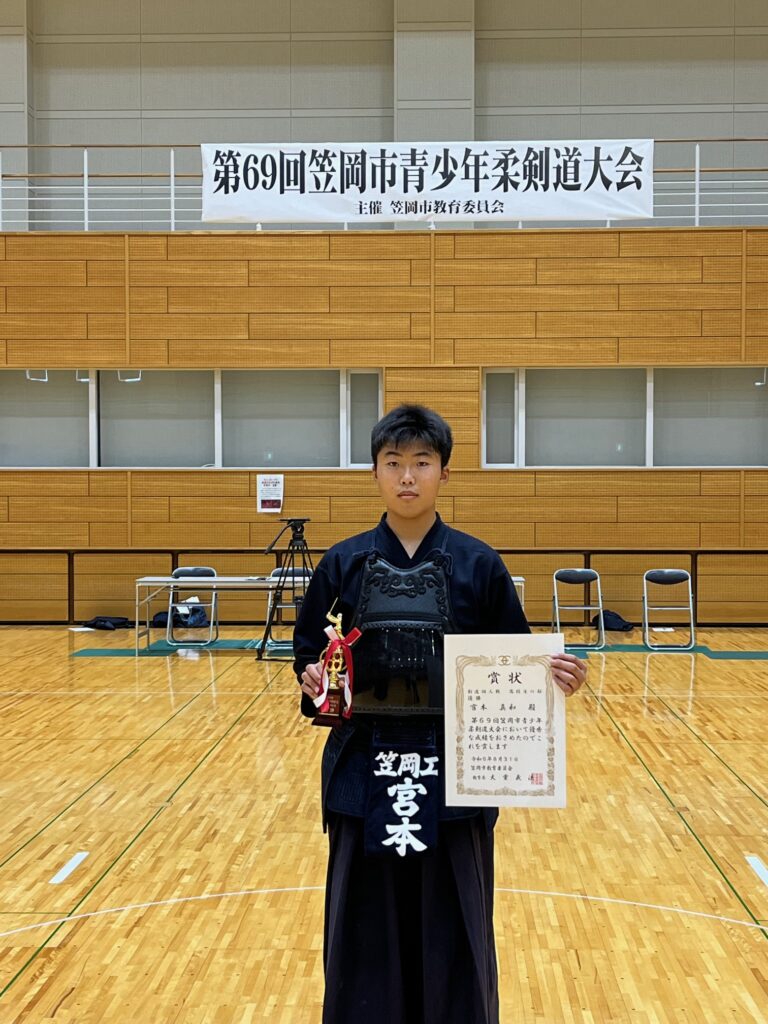 第69回笠岡市青少年柔剣道大会
主催 笠岡市教育委員会
賞状
剣道個人戦 高校生の部
優勝
宮本 真和 殿
第69回笠岡市青少年
柔剣道大会において優秀
な成績をおさめたのでこ
れを賞します
笠岡市教育委員会
笠岡工
宮本